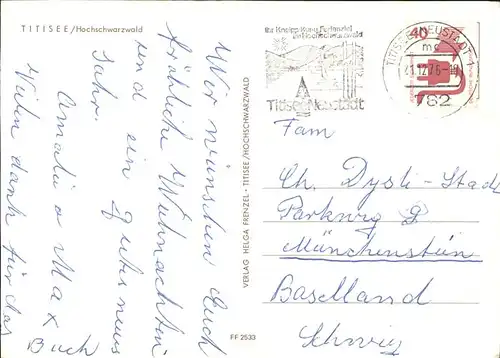 TITISEE/Hochschwarzwald
Wir wünschen Euch
fröhliche Weihnachten
und ein gutes neues
Jahr.
Amalie u Max
Vielen dank für das
Buch
VERLAG HELGA FRENZEL · TITISEE/HOCHSCHWARZWALD
FF 2533
Ihr Kneipp Kurs Ferienziel
im Hochschwarzwald
Titisee-Neustadt
TITISEE-NEUSTADT 1
mc
21.12.76-18
782
40
Fam
Ch. Dysli-Stad
Parkweg 9
Münchenstein
Baselland
Schweiz